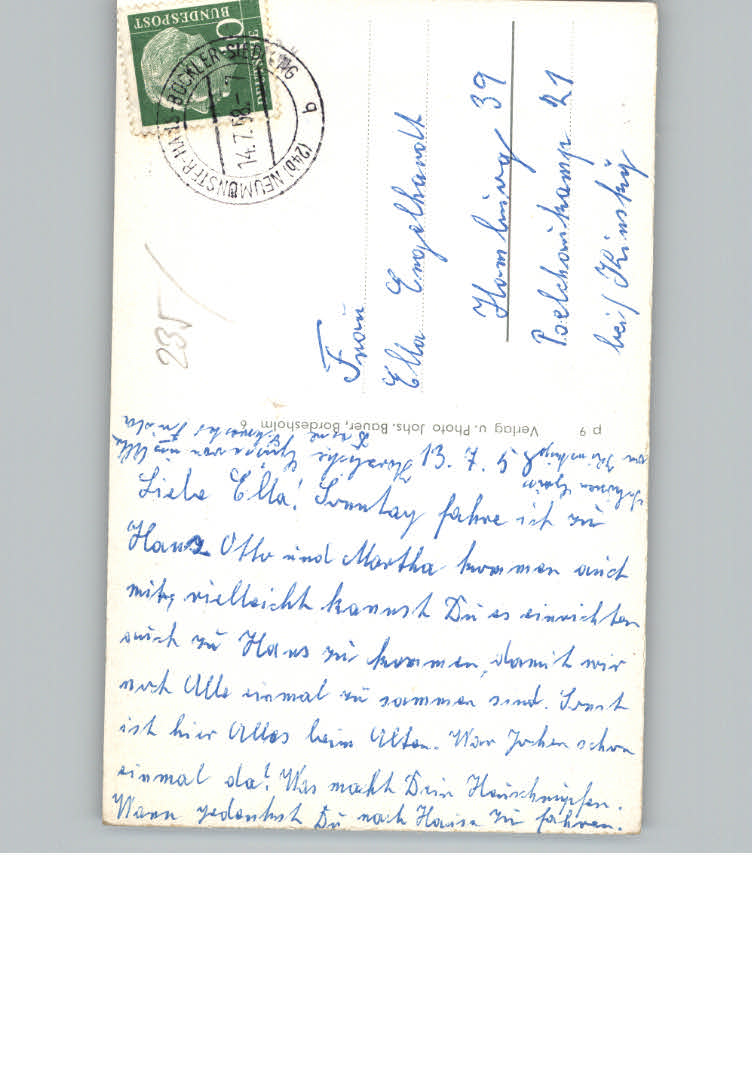 DEUTSCHE
BUNDESPOST
10
(24b) NEUMÜNSTER-HANS-BÖCKLER-SIEDLUNG
14.7.58.-1
b
235
Frau
Ella Engelhardt
Hamburg 39
Poelchaukamp 21
bei Kinsky
p 9 Verlag u. Photo Johs. Bauer, Bordesholm 6
13.7.58
Liebe Ella! Sonntag fahre ich zu
Hans Otto und Martha kommen auch
mit, vielleicht kannst Du es einrichten
auch zu Hans zu kommen, damit wir
noch Alle einmal zu sammen sind. Sonst
ist hier Alles beim Alten. War Jochen schon
einmal da? Was macht Dein Heuschnupfen.
Wann gedenkst Du nach Hause zu fahren.
Herzliche Grüsse von uns Allen
Deine Schwester Frieda